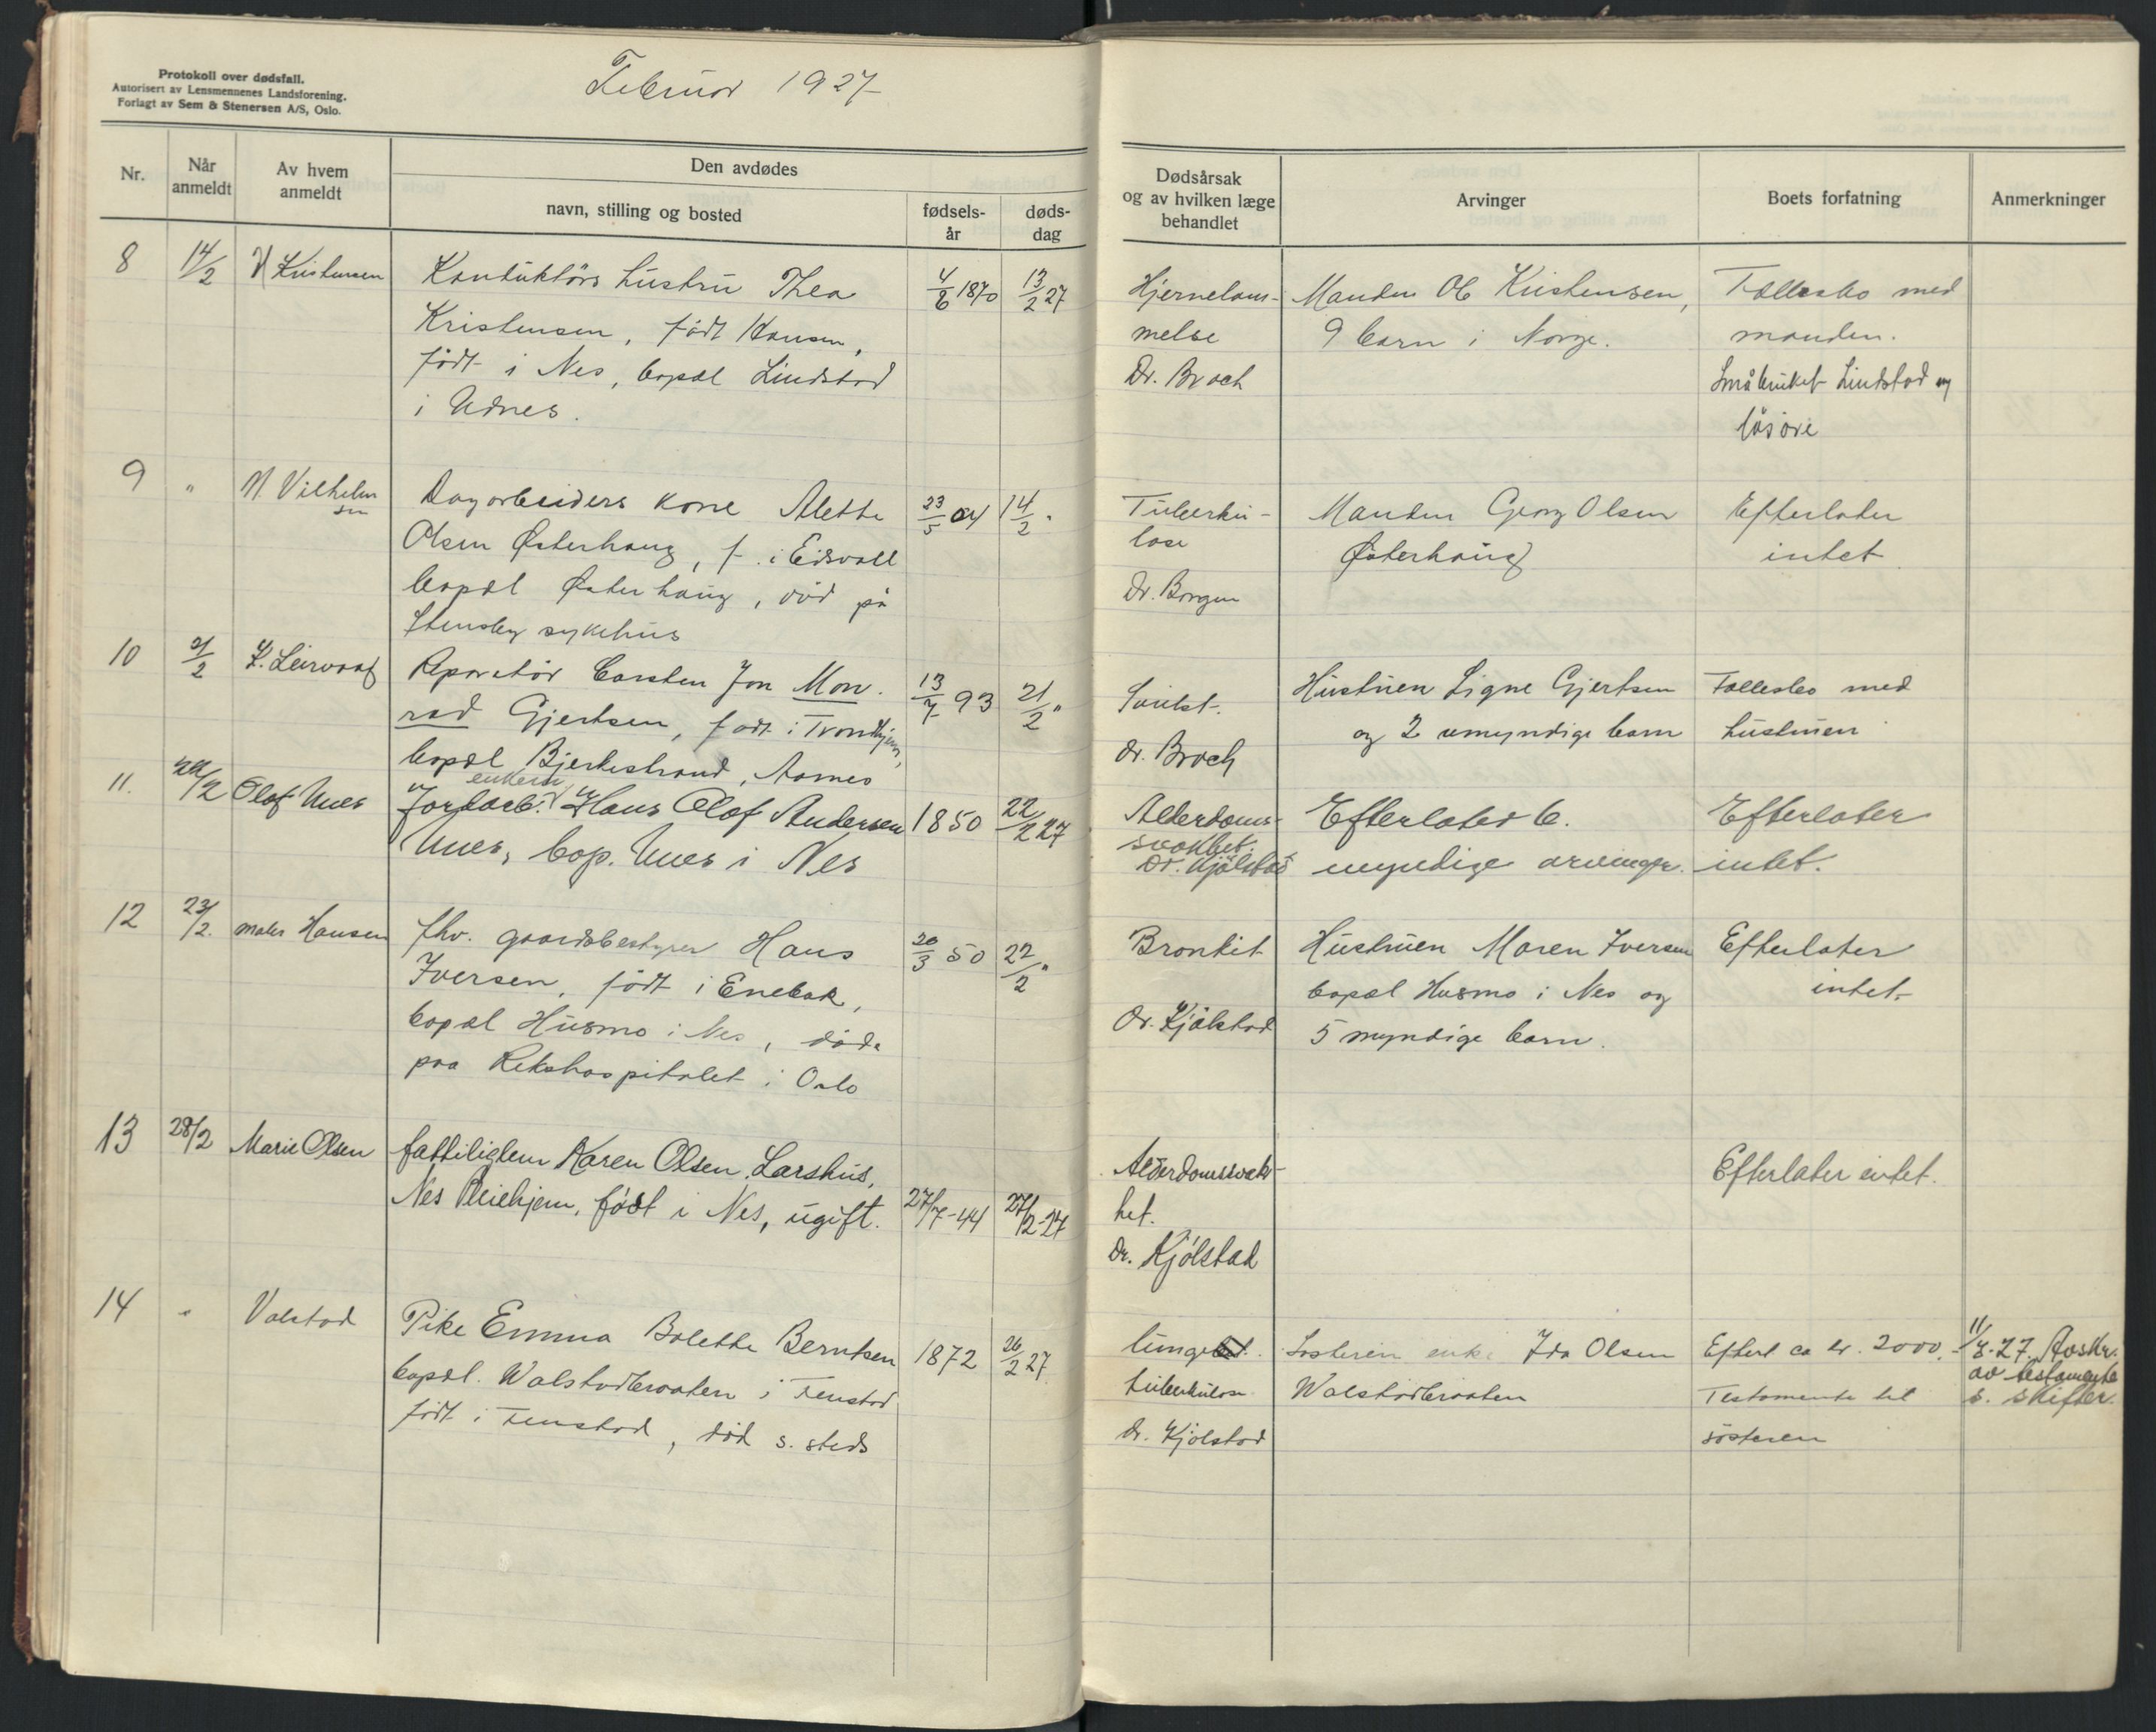 Protokoll over dødsfall.
Autorisert av Lensmennenes Landsforening.
Forlagt av Sem & Stenersen A/S, Oslo.
Februar 1927
Nr.
Når anmeldt
Av hvem anmeldt
Den avdødes
navn, stilling og bosted
fødsels-år
døds-dag
Dødsårsak og av hvilken læge behandlet
Arvinger
Boets forfatning
Anmerkninger
8 14/2 Kristensen
Konduktörs hustru Thea 4/6 1870 13/2 27
Kristensen, født Hansen,
født i Nes, bopæl Lindstad
i Udnes.
Hjernelam-
melse
Dr. Broch
Manden Ole Kristensen,
9 barn i Norge.
Fællesbo med
manden.
Småbruket Lindstad og
løsøre
9 " Vilhelm
sen
Dagarbeiders kone Alette 23/5 04 14/2 "
Olsen Østerhaug, f. i Eidsvoll
bopæl Østerhaug, død på
Stensby sykehus
Tuberku-
lose
Dr. Borgen
Manden Georg Olsen
Østerhaug
Efterlater
intet
10 21/2 Leirvaag
Reparatør Carsten Jon Mon- 13/7 93 21/2 "
rad Gjertsen, født i Trondhjem,
bopæl Bjerkestrand, Aarnes
Dr. Broch
Hustruen Signe Gjertsen
og 2 umyndige barn
Fællesbo med
hustruen
11. 22/2 Olof Unes
enkem.
Jordarb. Hans Olof Andersen 1850 22/2 27
Unes, bop. Unes i Nes
Alderdoms-
svakhet.
Dr. Kjölstad
Efterlater 6.
myndige arvinger.
Efterlater
intet.
12 23/2. maler Hansen
fhv. gaardsbestyrer Hans 20/3 50 22/2 "
Iversen, født i Enebak,
bopæl Husmo i Nes, døde
paa Rikshospitalet i Oslo
Bronkit
Dr. Kjölstad
Hustruen Maren Iversen
bopæl Husmo i Nes og
5 myndige barn.
Efterlater
intet.
13 28/2 Marie Olsen
fattiglem Karen Olsen Larshus,
Nes Pleiehjem, født i Nes, ugift. 27/7-44 27/2-27
Alderdomssvak-
het.
Dr. Kjölstad
Efterlater intet.
14 " Valstad
Pike Emma Bolette Berntsen 1872 26/2 27
bopæl. Walstadbraaten i Fenstad
født i Fenstad, död s. steds
lunge
tuberkulose
Dr. Kjölstad
Søsteren enke Ida Olsen
Walstadbraaten
Efterl ca kr. 2000.-
Testamente til
søsteren
11/3-27. Avskr.
av testamente
s. skifter.